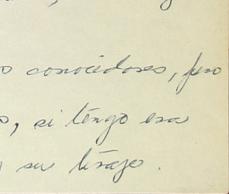 o conocedores, pero
s, si tengo esa
su tiraje.